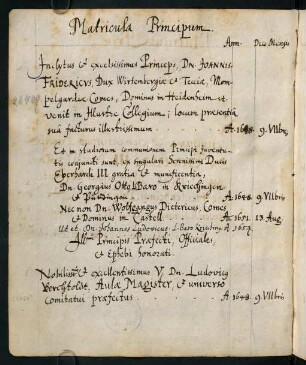 Matricula Principum.
Ann. Dies Mensis
Inclytus & excelsissimus Princeps, Dn. JOANNES
FRIDERICUS, Dux Wirtenbergiæ & Tecciæ, Mom-
pelgardiæ Comes, Dominus in Heidenheim &
venit in Illustre Collegium; locum præsentia
sua facturus illustrissimum A. 1648. 9. VIIbris
Et in studiorum communionem Principi juveni
conjuncti sunt, ex singulari Serenissimi Ducis
Eberhardi III gratia & munificentia,
Dn. Georgius Otto L. Baro in
& A. 1648. 9. VIIbris
Nec non Dn. Wolfgangus Dietericus, Comes
& Dominus in Castell A. 1651. 13. Aug.
Ut et Dn. Johannes Ludovicus L. Baro
Principis Præfecti, Officiales,
& Ephebi honorati.
Nobilissimus & excellentissimus V. Dn. Ludovicus
Aulæ Magister, & universo
comitatui præfectus A. 1648. 9. VIIbris